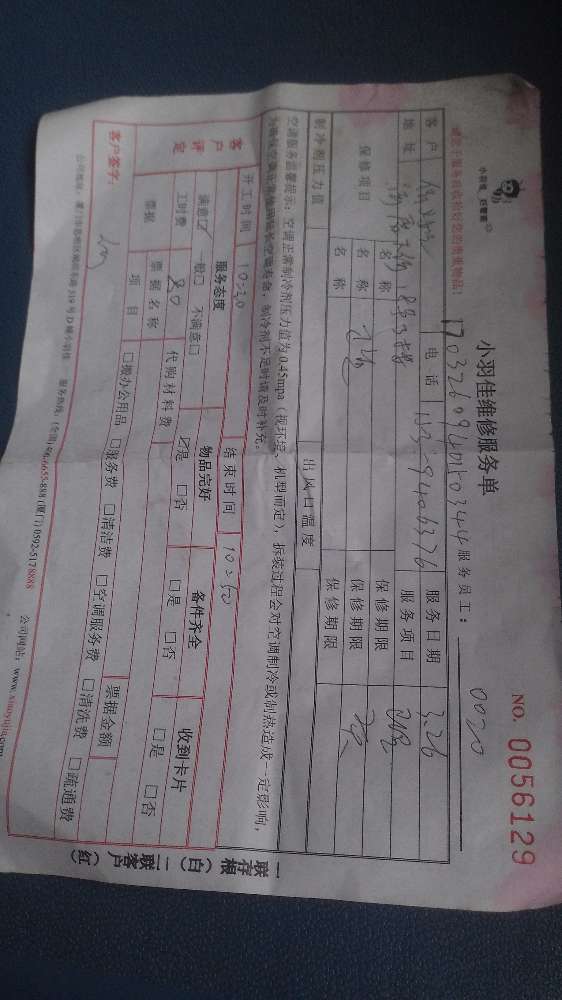 小羽佳维修服务单
NO. 0056129
请您于服务前收拾好您的贵重物品!
1703260940150344 服务员工: 0020
客户 电话 服务日期 3.26
地址 服务项目
保修项目 名称 保修期限
名称 保修期限
名称 保修期限
制冷剂压力值 出风口温度
空调服务温馨提示: 空调正常制冷剂压力值为0.45mpa (视环境、机型而定), 拆装过程会对空调制冷或制热造成一定影响,
为确保空调正常使用延长空调寿命, 制冷剂不足时请及时补充。
开工时间 10:30 结束时间 10:50
客户评定 服务态度 物品完好 备件齐全 收到卡片
满意☑ 一般□ 不满意□ ☑是 □否 □是 □否 □是 □否
工时费 80 代购材料费
票据 票据名称 票据金额
项目 □搬办公用品 □服务费 □清洁费 □空调服务费 □清洗费 □疏通费
客户签字:
服务热线: (全国) 400-6655-888 (厦门) 0592-5178888
公司网站:
一联存根(白) 二联客户(红)